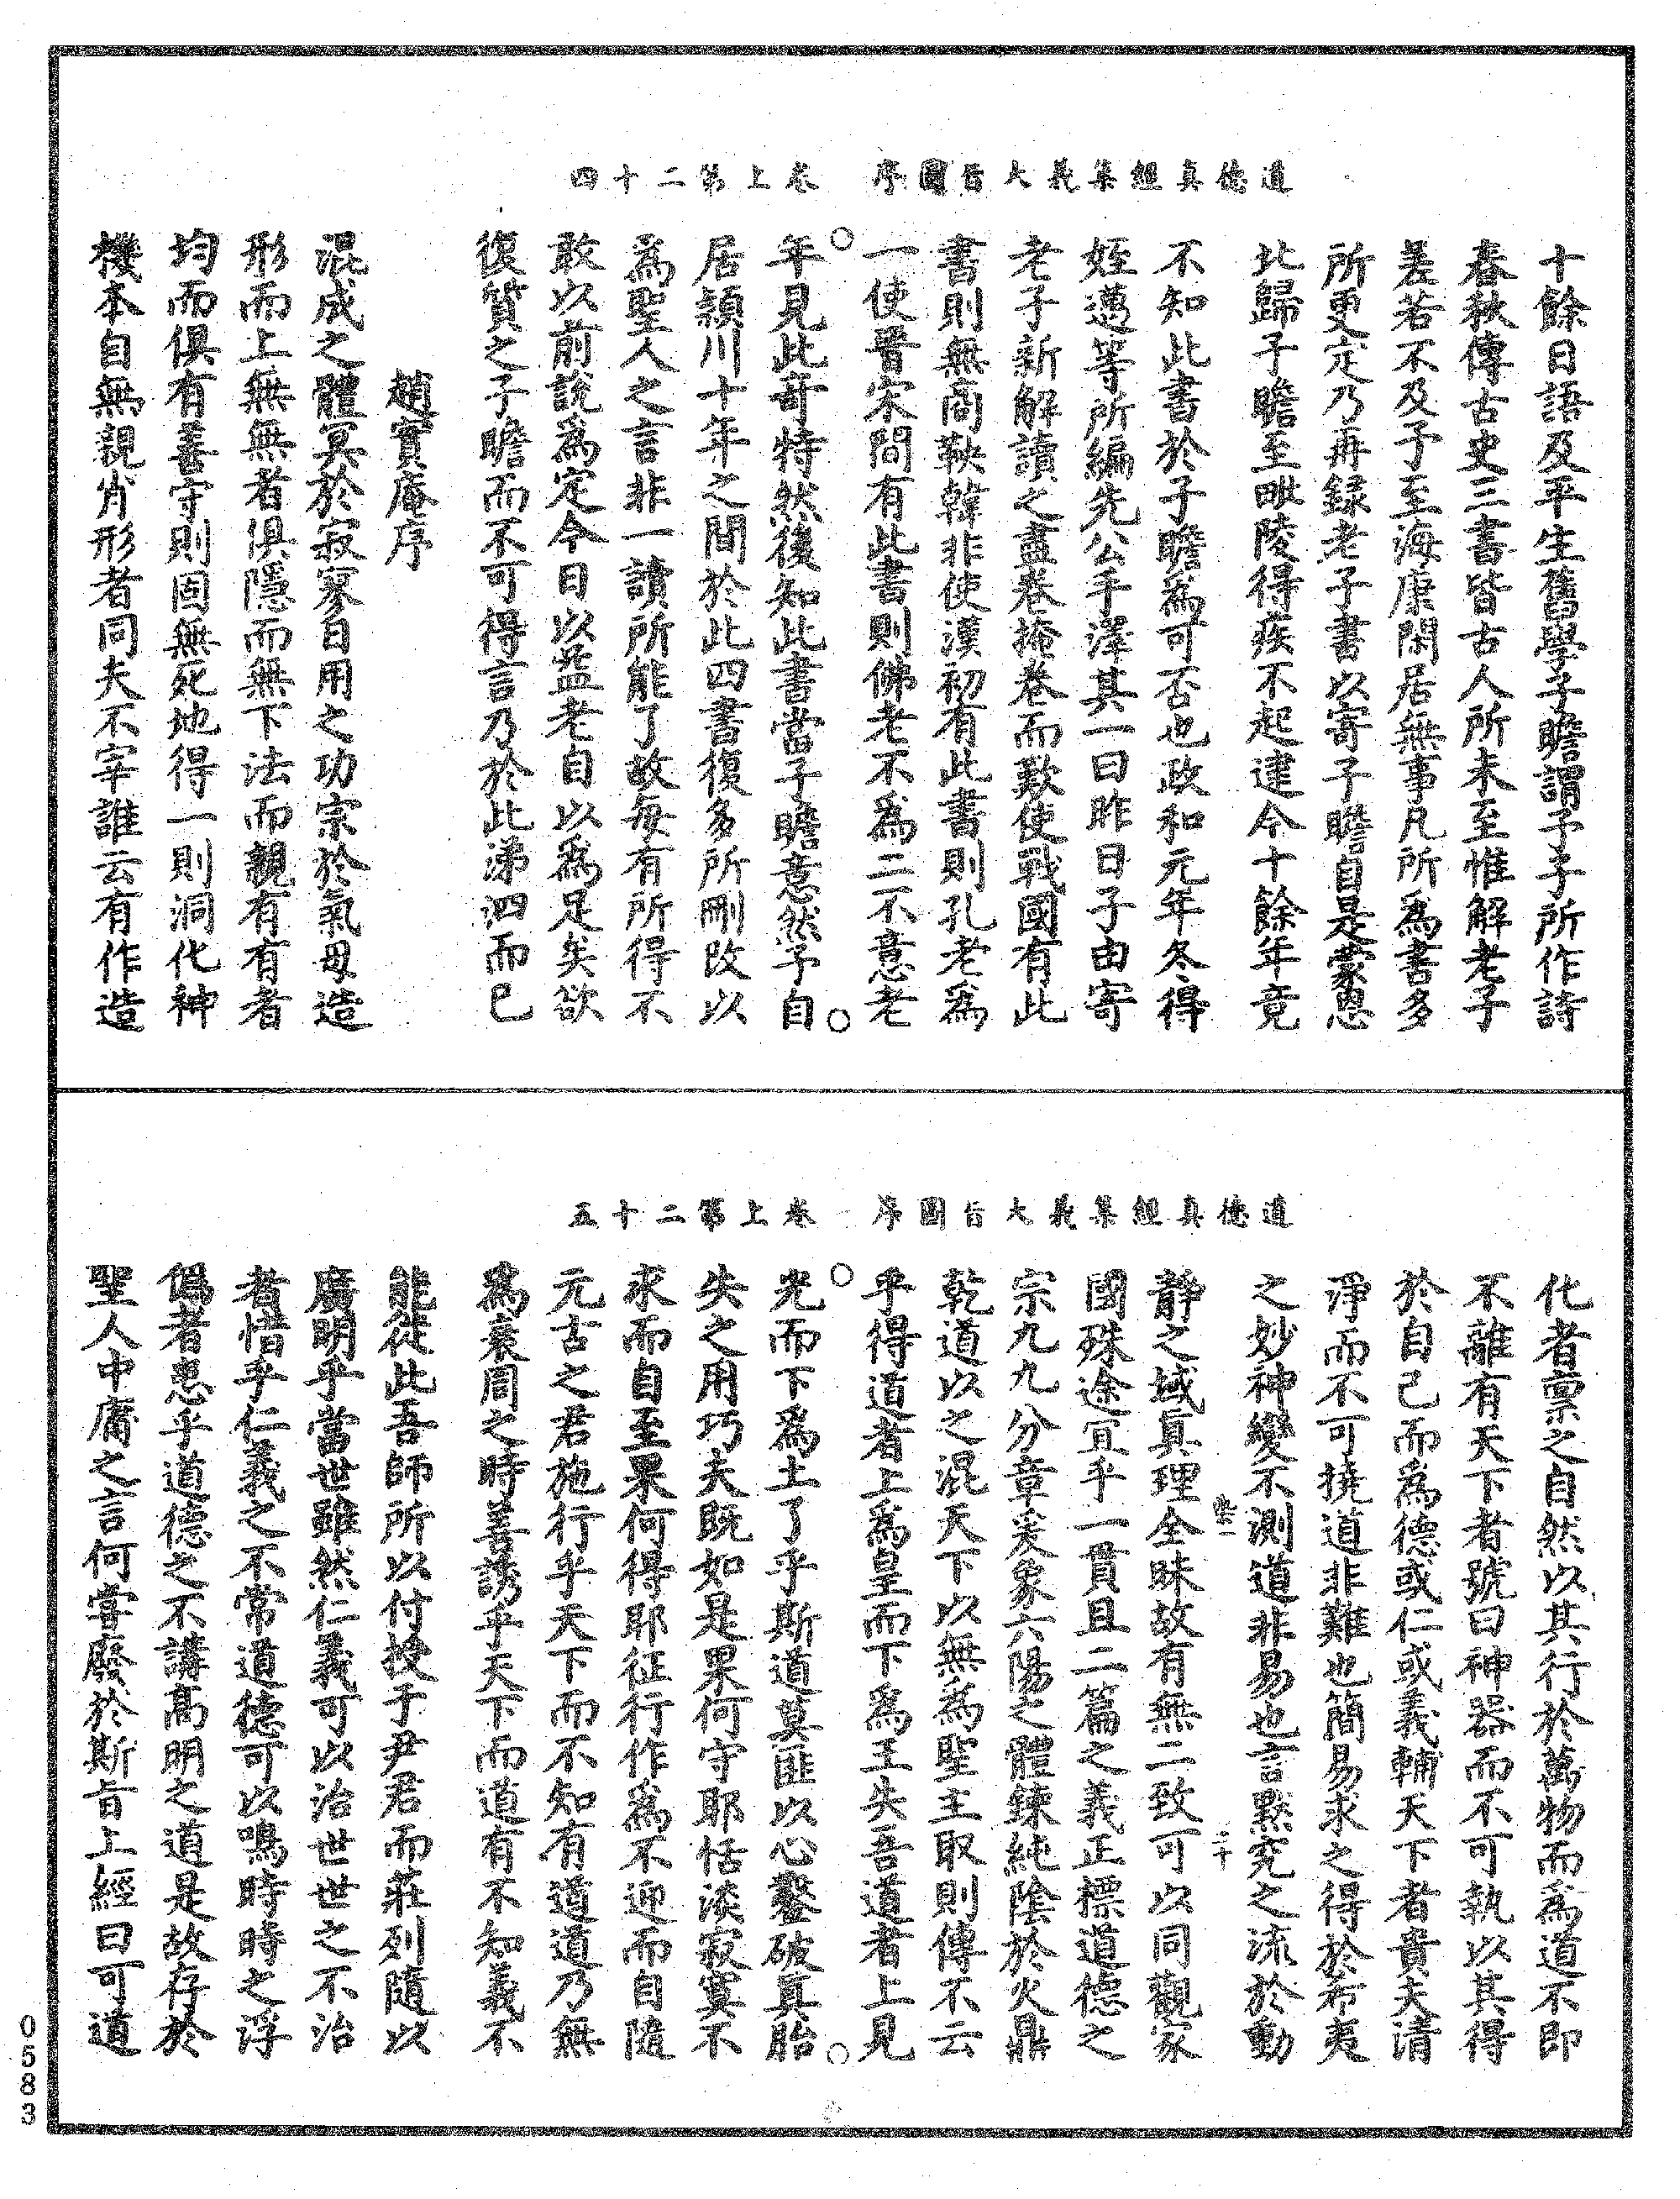 道德真經集義大旨圖序　卷上第二十四
十餘日語及平生舊學子瞻謂予子所作詩
春秋傳古史三書皆古人所未至惟解老子
差若不及予至海康閑居無事凡所為書多
所更定乃再録老子書以寄子瞻自是蒙恩
北歸子瞻至毗陵得疾不起逮今十餘年竟
不知此書於子瞻為可否也政和元年冬得
姪邁等所編先公手澤其一曰昨日子由寄
老子新解讀之盡卷掩卷而歎使戰國有此
書則無商鞅韓非使漢初有此書則孔老為
一使晉宋間有此書則佛老不為二不意老
年見此奇特然後知此書當子瞻意然予自
居潁川十年之間於此四書復多所刪改以
為聖人之言非一讀所能了故每有所得不
敢以前說為定今日以益老自以為足矣欲
復質之子瞻而不可得言乃於此涕泗而已
趙實庵序
混成之體冥於寂寥日用之功宗於氣母造
形而上無無者俱隱而無下法而觀有有者
均而俱有善守則固無死地得一則洞化神
機本自無親肖形者同夫不宰誰云有作造
道德真經集義大旨圖序　卷上第二十五
化者稟之自然以其行於萬物而為道不即
不離有天下者號曰神器而不可執以其得
於自己而為德或仁或義輔天下者貴夫清
淨而不可撓道非難也簡易求之得於希夷
之妙神變不測道非易也言默究之流於動
靜之域真理全昧故有無二致可以同觀家
國殊途宜乎一貫且二篇之義正標道德之
宗九九分章爰象六陽之體鍊純陰於火鼎
乾道以之混天下以無為聖主取則傳不云
乎得道者上為皇而下為王失吾道者上見
光而下為土了乎斯道莫匪以心鑿破真胎
失之用巧夫既如是果何守耶恬淡寂寞不
求而自至果何得耶征行作為不迎而自隨
元古之君施行乎天下而不知有道道乃無
為衰周之時善誘乎天下而道有不知義不
能從此吾師所以付授于尹君而莊列隨以
廣明乎當世雖然仁義可以治世世之不治
者惜乎仁義之不常道德可以鳴時時之浮
偽者患乎道德之不講高明之道是故存於
聖人中庸之言何嘗廢於斯旨上經曰可道
0583